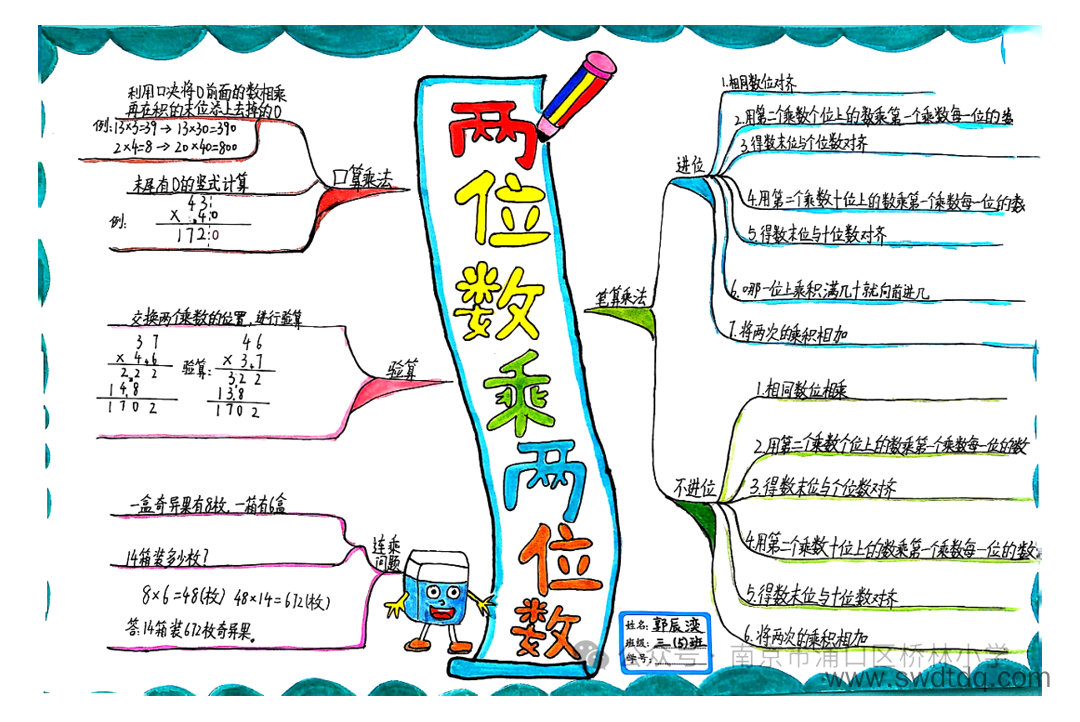 两位数乘两位数
口算乘法
利用口决将0前面的数相乘
再在积的末位添上去掉的0
例:13×3=39→13×30=390
2×4=8→20×40=800
末尾有0的竖式计算
例:
43
×.40
1720
验算
交换两个乘数的位置,进行验算
37
×4.6
2.22
14.8
1702
验算:
46
×3.7
3.22
13.8
1702
连乘
问题
一盒奇异果有8枚,一箱有6盒
14箱装多少枚?
8×6=48(枚) 48×14=672(枚)
答:14箱装672枚奇异果。
笔算乘法
进位
1.相同数位对齐
2.用第二个乘数个位上的数乘第一个乘数每一位的数
3.得数末位与个位数对齐
4.用第二个乘数十位上的数乘第一个乘数每一位的数
5.得数末位与十位数对齐
6.哪一位上乘积满几十就向前进几
7.将两次的乘积相加
不进位
1.相同数位相乘
2.用第二个乘数个位上的数乘第一个乘数每一位的数
3.得数末位与个位数对齐
4.用第二个乘数十位上的数乘第一个乘数每一位的数
5.得数末位与十位数对齐
6.将两次的乘积相加
姓名:郭辰
班级:三(5)班
学号:
公众号·南京市浦口区桥林小学
www.swdtdq.com